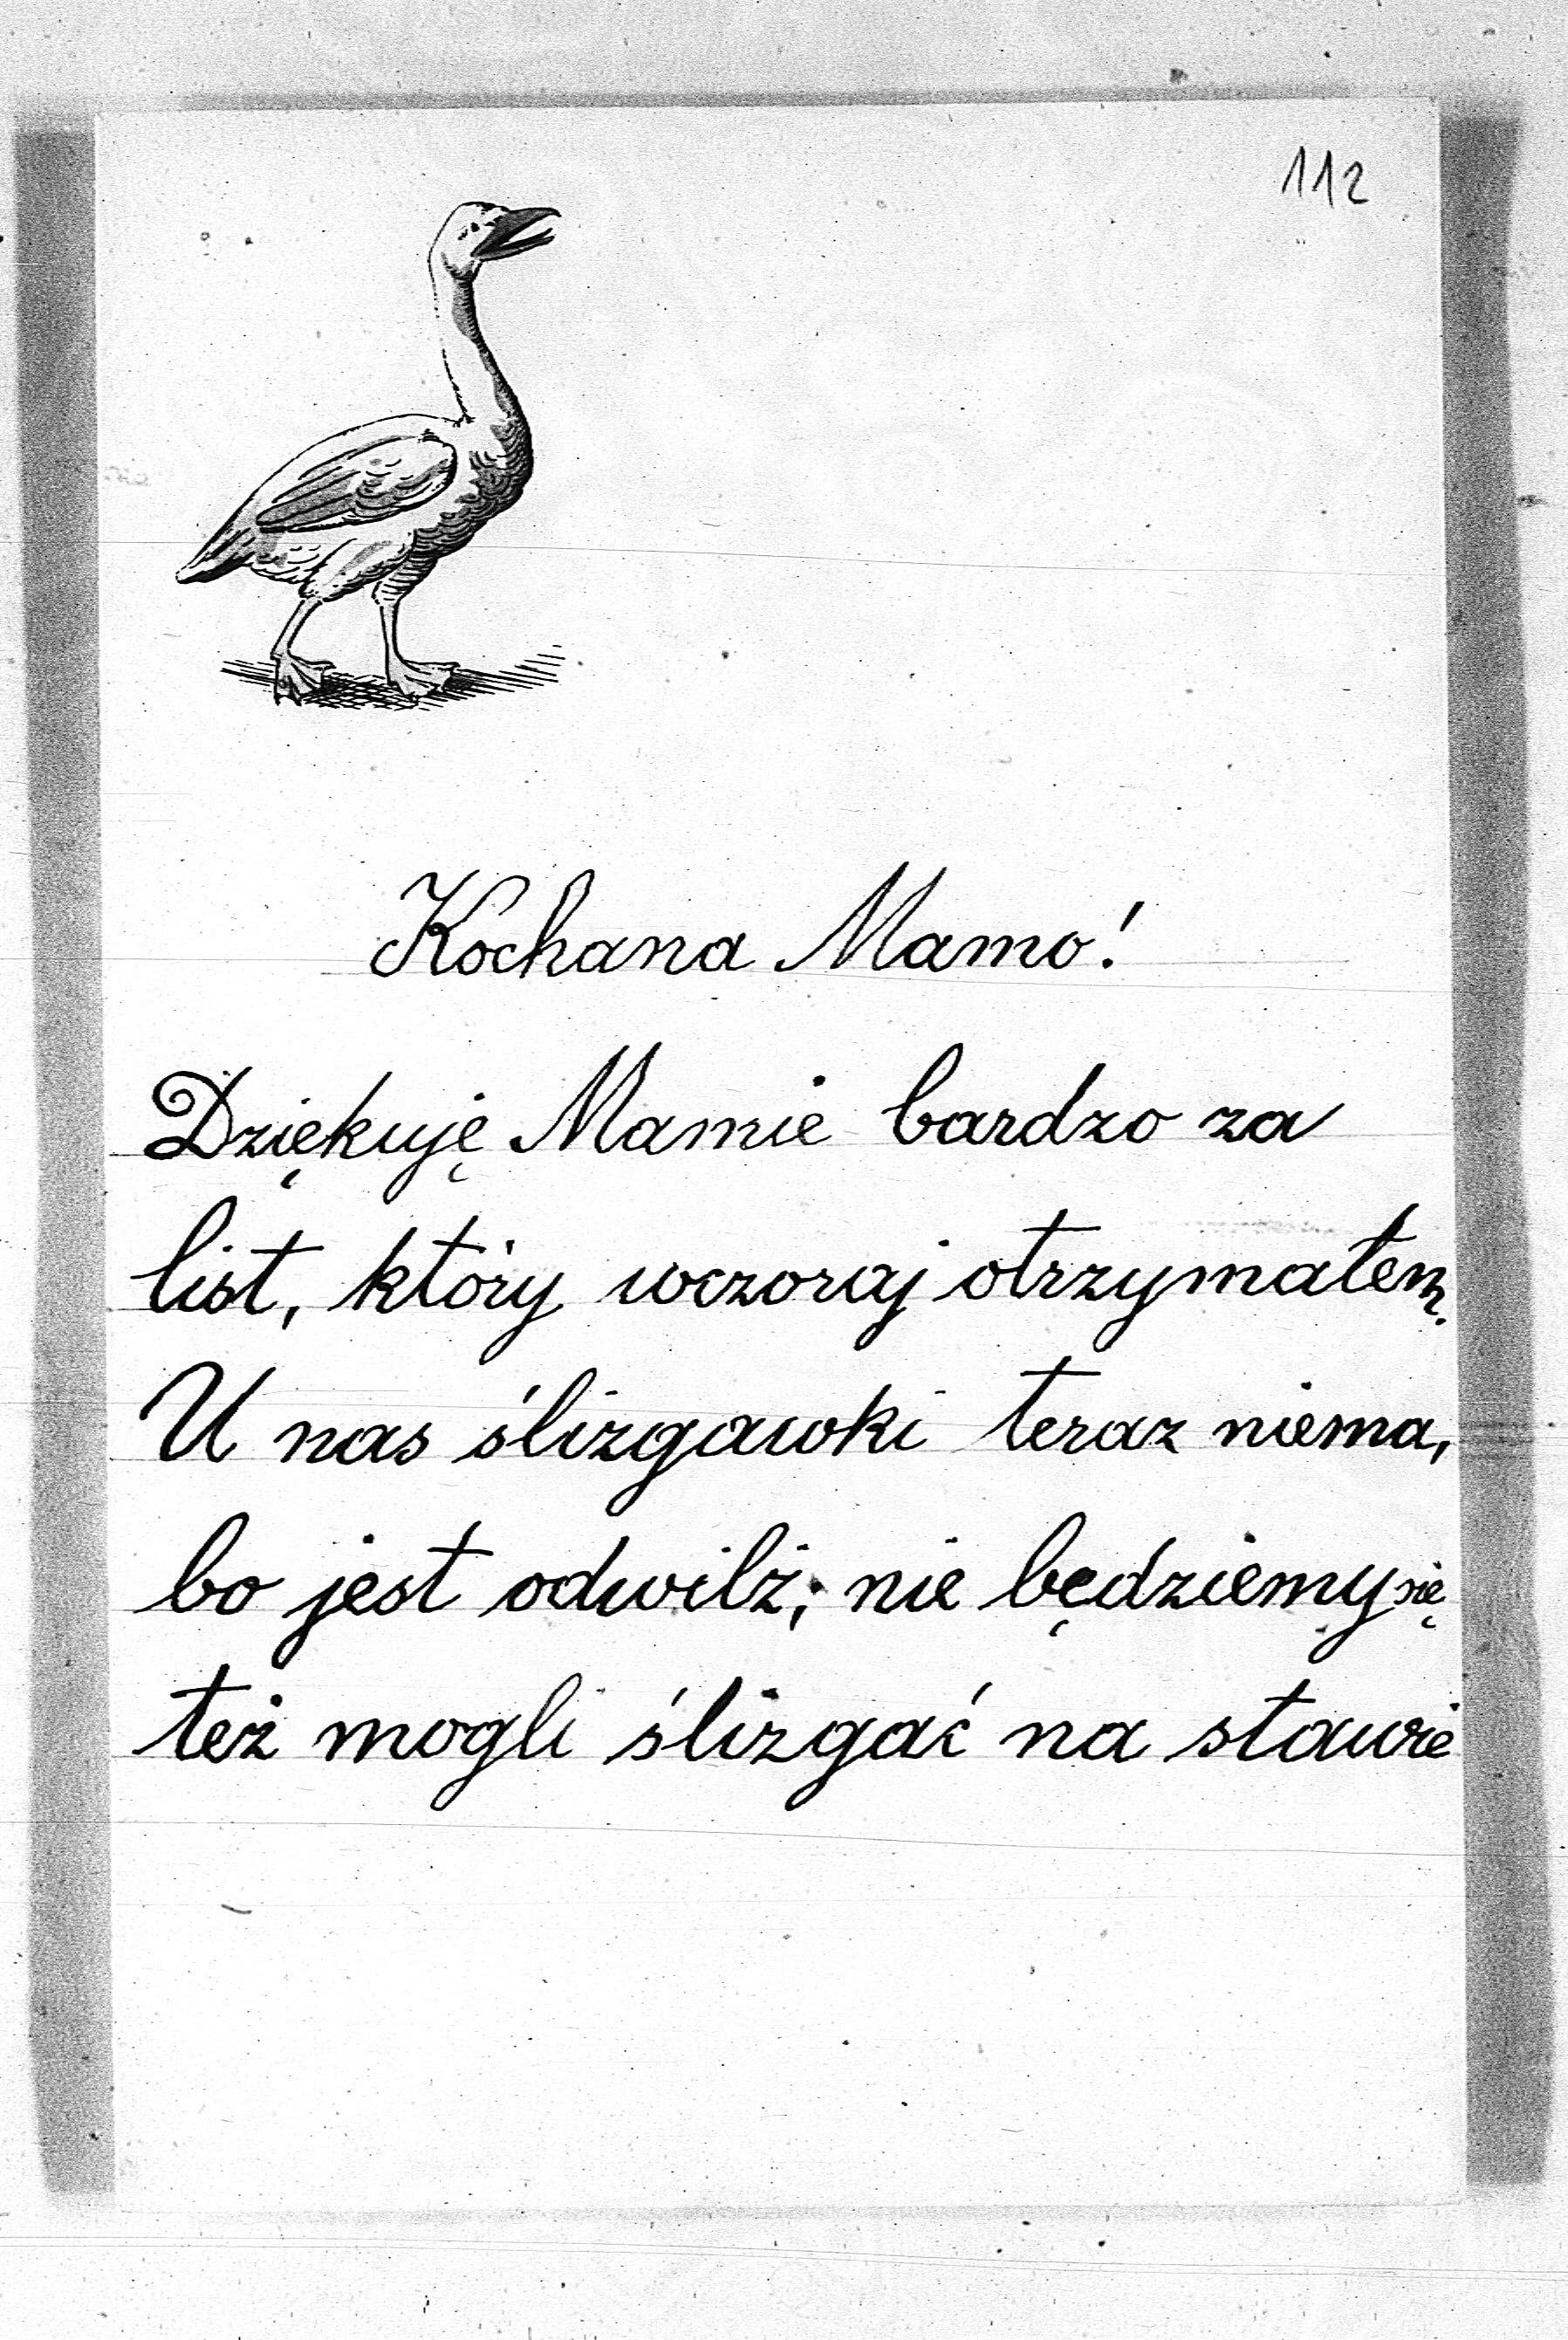 112
Kochana Mamo!
Dziękuję Mamie bardzo za
list, który wczoraj otrzymałem.
U nas ślizgawki teraz niema,
bo jest odwilż; nie będziemy się
też mogli ślizgać na stawie